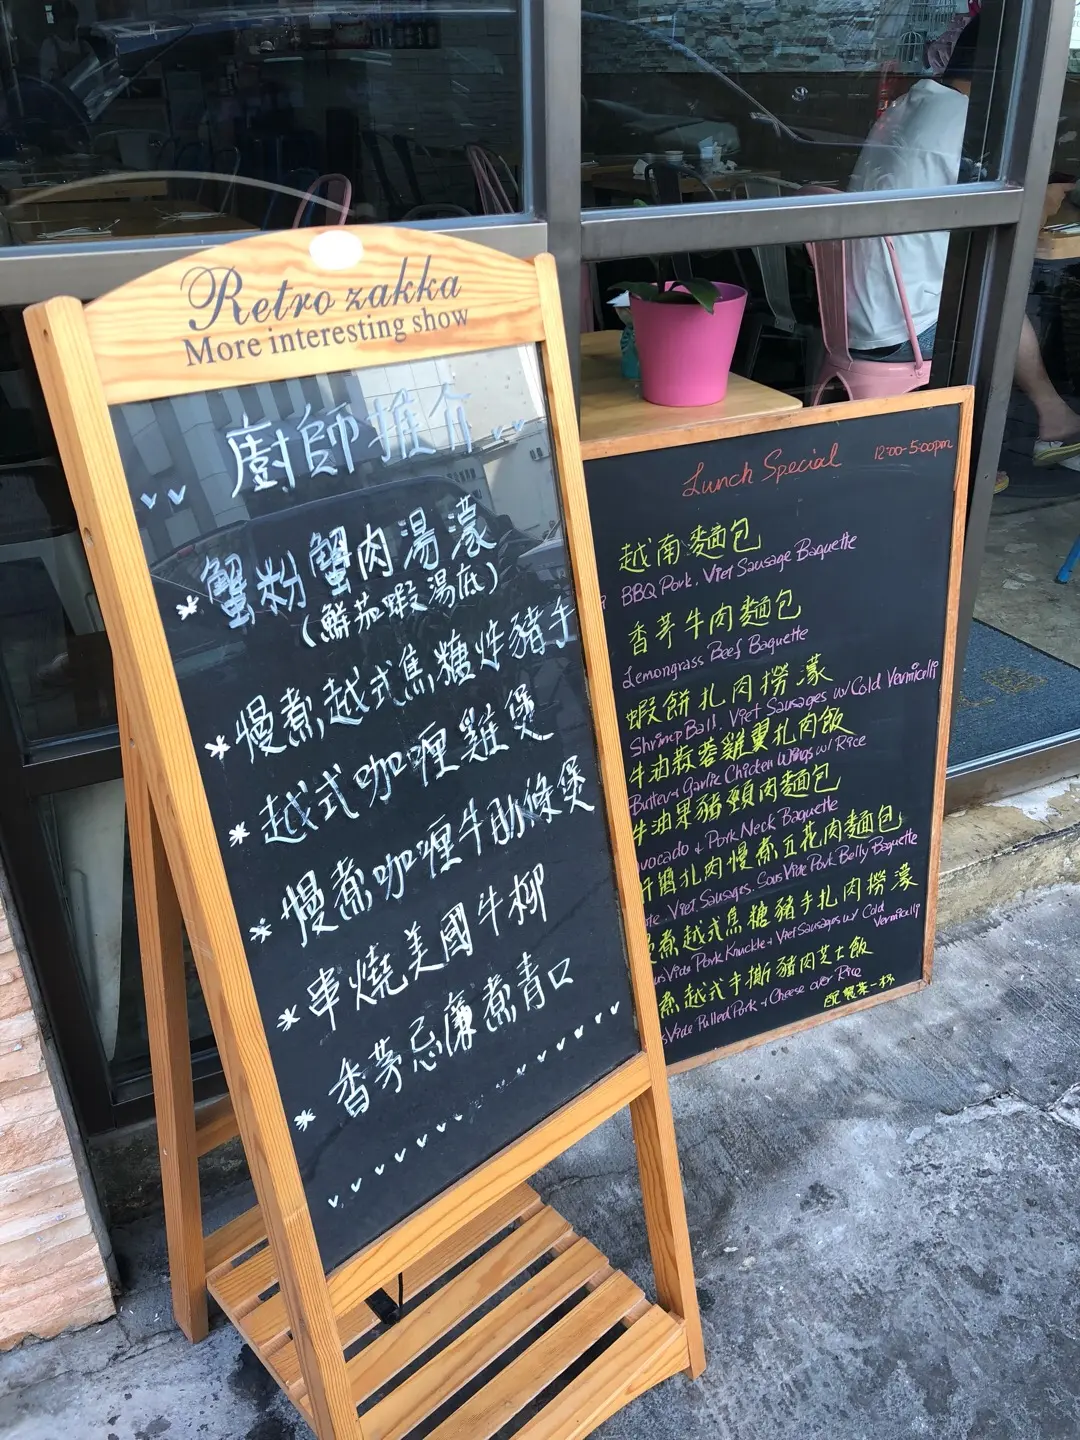 Retro zakka
More interesting show
廚師推介
* 蟹粉蟹肉湯濛
(鮮茄蝦湯底)
* 慢煮越式焦糖炸豬手
* 越式咖喱雞煲
* 慢煮咖喱牛肋條煲
* 串燒美國牛柳
* 香茅忌廉煮青口
Lunch Special 12:00-5:00pm
越南麵包
BBQ Pork, Viet Sausage Baguette
香茅牛肉麵包
Lemongrass Beef Baguette
蝦餅扎肉撈濛
Shrimp Ball, Viet Sausages w/ Cold Vermicelli
牛油蒜蓉雞翼扎肉飯
Butter & Garlic Chicken Wings w/ Rice
牛油果豬頸肉麵包
vocado & Pork Neck Baguette
肝醬扎肉慢煮五花肉麵包
te, Viet Sausages, Sous Vide Pork Belly Baguette
煮越式焦糖豬手扎肉撈濛
us Vide Pork Knuckle & Viet Sausages w/ Cold Vermicelli
煮越式手撕豬肉芝士飯
s Vide Pulled Pork & Cheese over Rice
配餐茶一杯